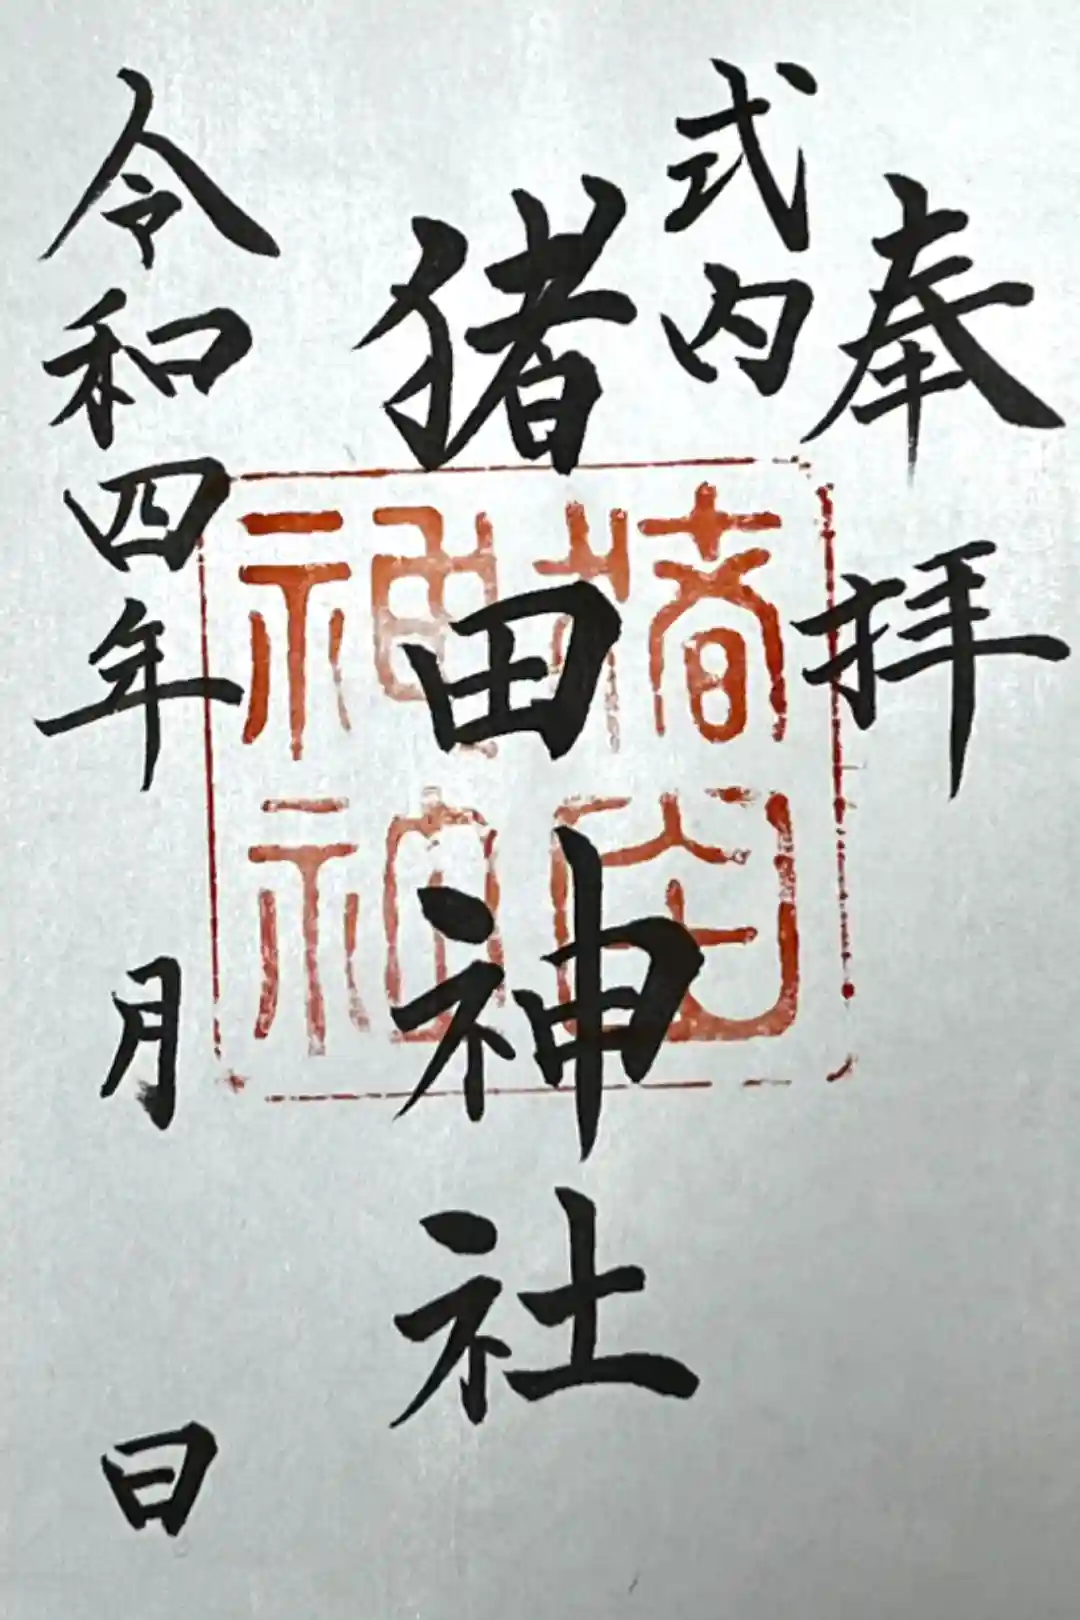 奉拝
式内
猪田神社
令和四年 月 日
猪田
神社